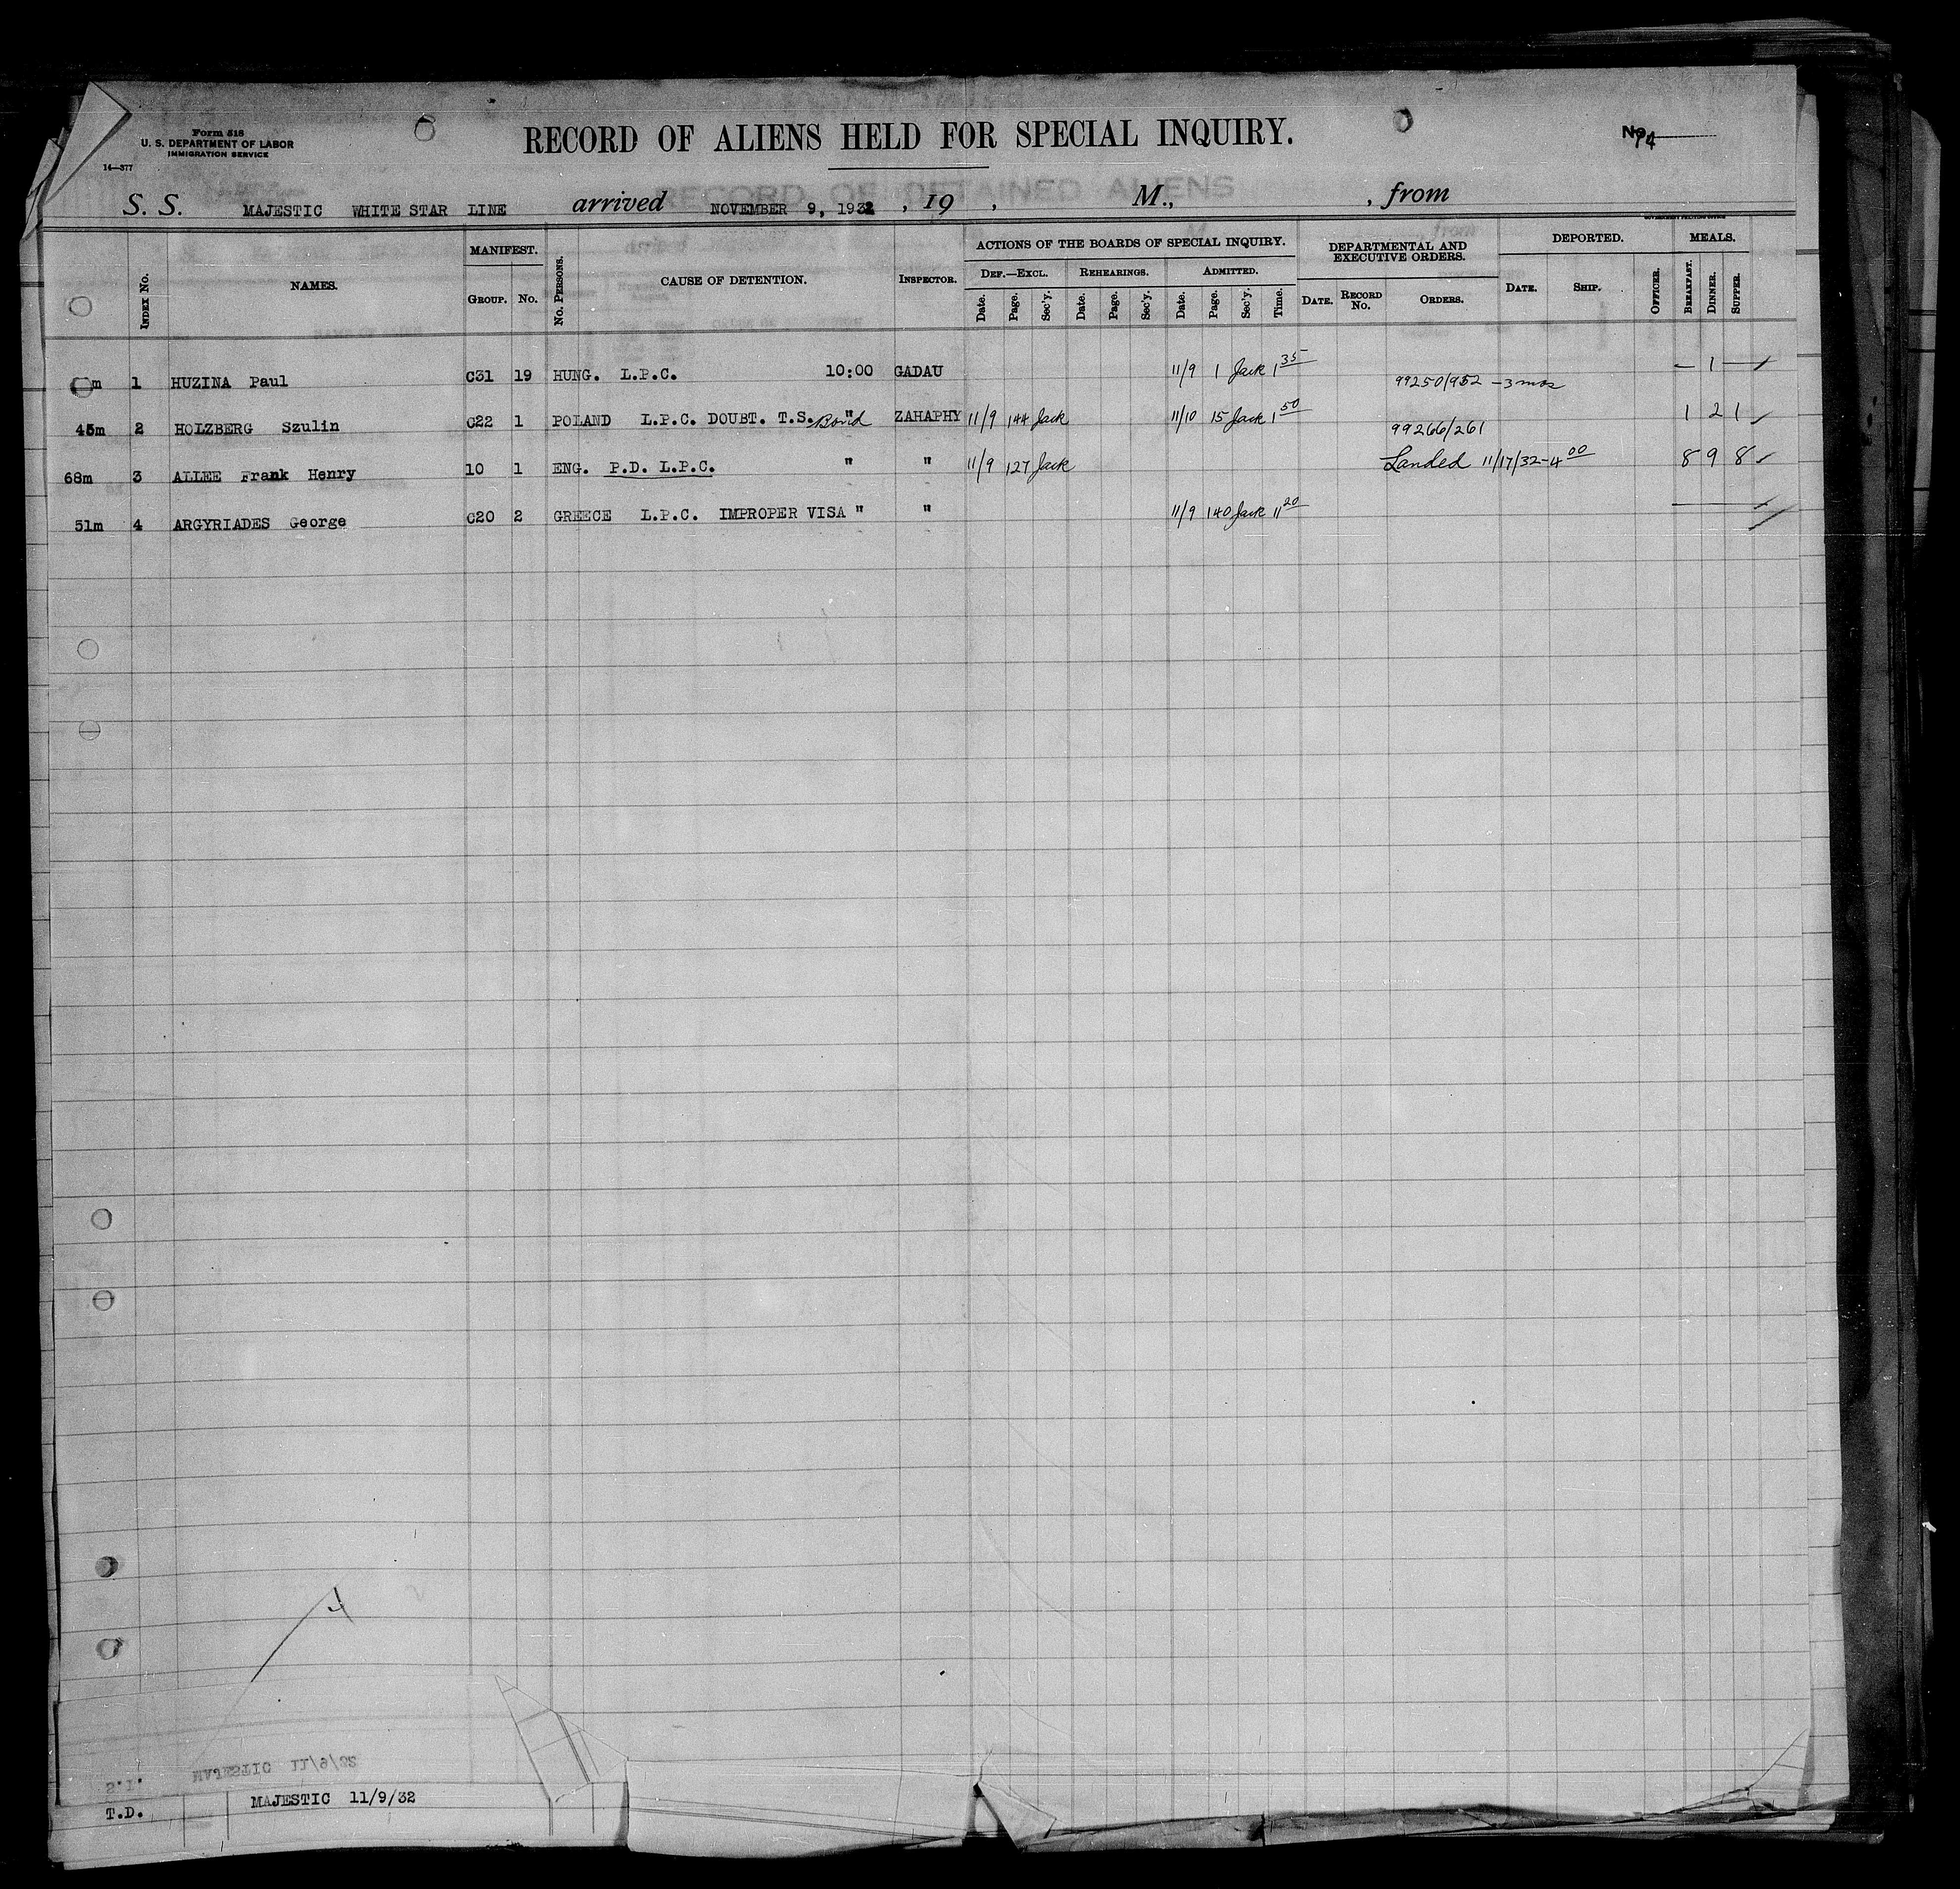 Form 518
U. S. DEPARTMENT OF LABOR
IMMIGRATION SERVICE
14—377
RECORD OF ALIENS HELD FOR SPECIAL INQUIRY.
No.
S. S. MAJESTIC WHITE STAR LINE arrived NOVEMBER 9, 1932, 19 , M., , from
RECORD OF DETAINED ALIENS
INDEX No. NAMES. MANIFEST. GROUP. No. No. PERSONS. CAUSE OF DETENTION. INSPECTOR. ACTIONS OF THE BOARDS OF SPECIAL INQUIRY. DEF.—EXCL. Date. Page. Sec'y. REHEARINGS. Date. Page. Sec'y. ADMITTED. Date. Page. Sec'y. Time. DEPARTMENTAL AND EXECUTIVE ORDERS. DATE. RECORD No. ORDERS. DEPORTED. DATE. SHIP. OFFICER. MEALS. BREAKFAST. DINNER. SUPPER.
m 1 HUZINA Paul C31 19 HUNG. L.P.C. 10:00 GADAU 11/9 1 Jack 1 35 99250/952 - 3 mos — 1 —
45m 2 HOLZBERG Szulin C22 1 POLAND L.P.C. DOUBT. T.S. Bond " ZAHAPHY 11/9 144 Jack 11/10 15 Jack 1 50 99266/261 1 2 1
68m 3 ALLEE Frank Henry 10 1 ENG. P.D. L.P.C. " " 11/9 127 Jack Landed 11/17/32-4 00 8 9 8
51m 4 ARGYRIADES George C20 2 GREECE L.P.C. IMPROPER VISA " " 11/9 140 Jack 11 20
S.I. MAJESTIC 11/9/32
T.D. MAJESTIC 11/9/32